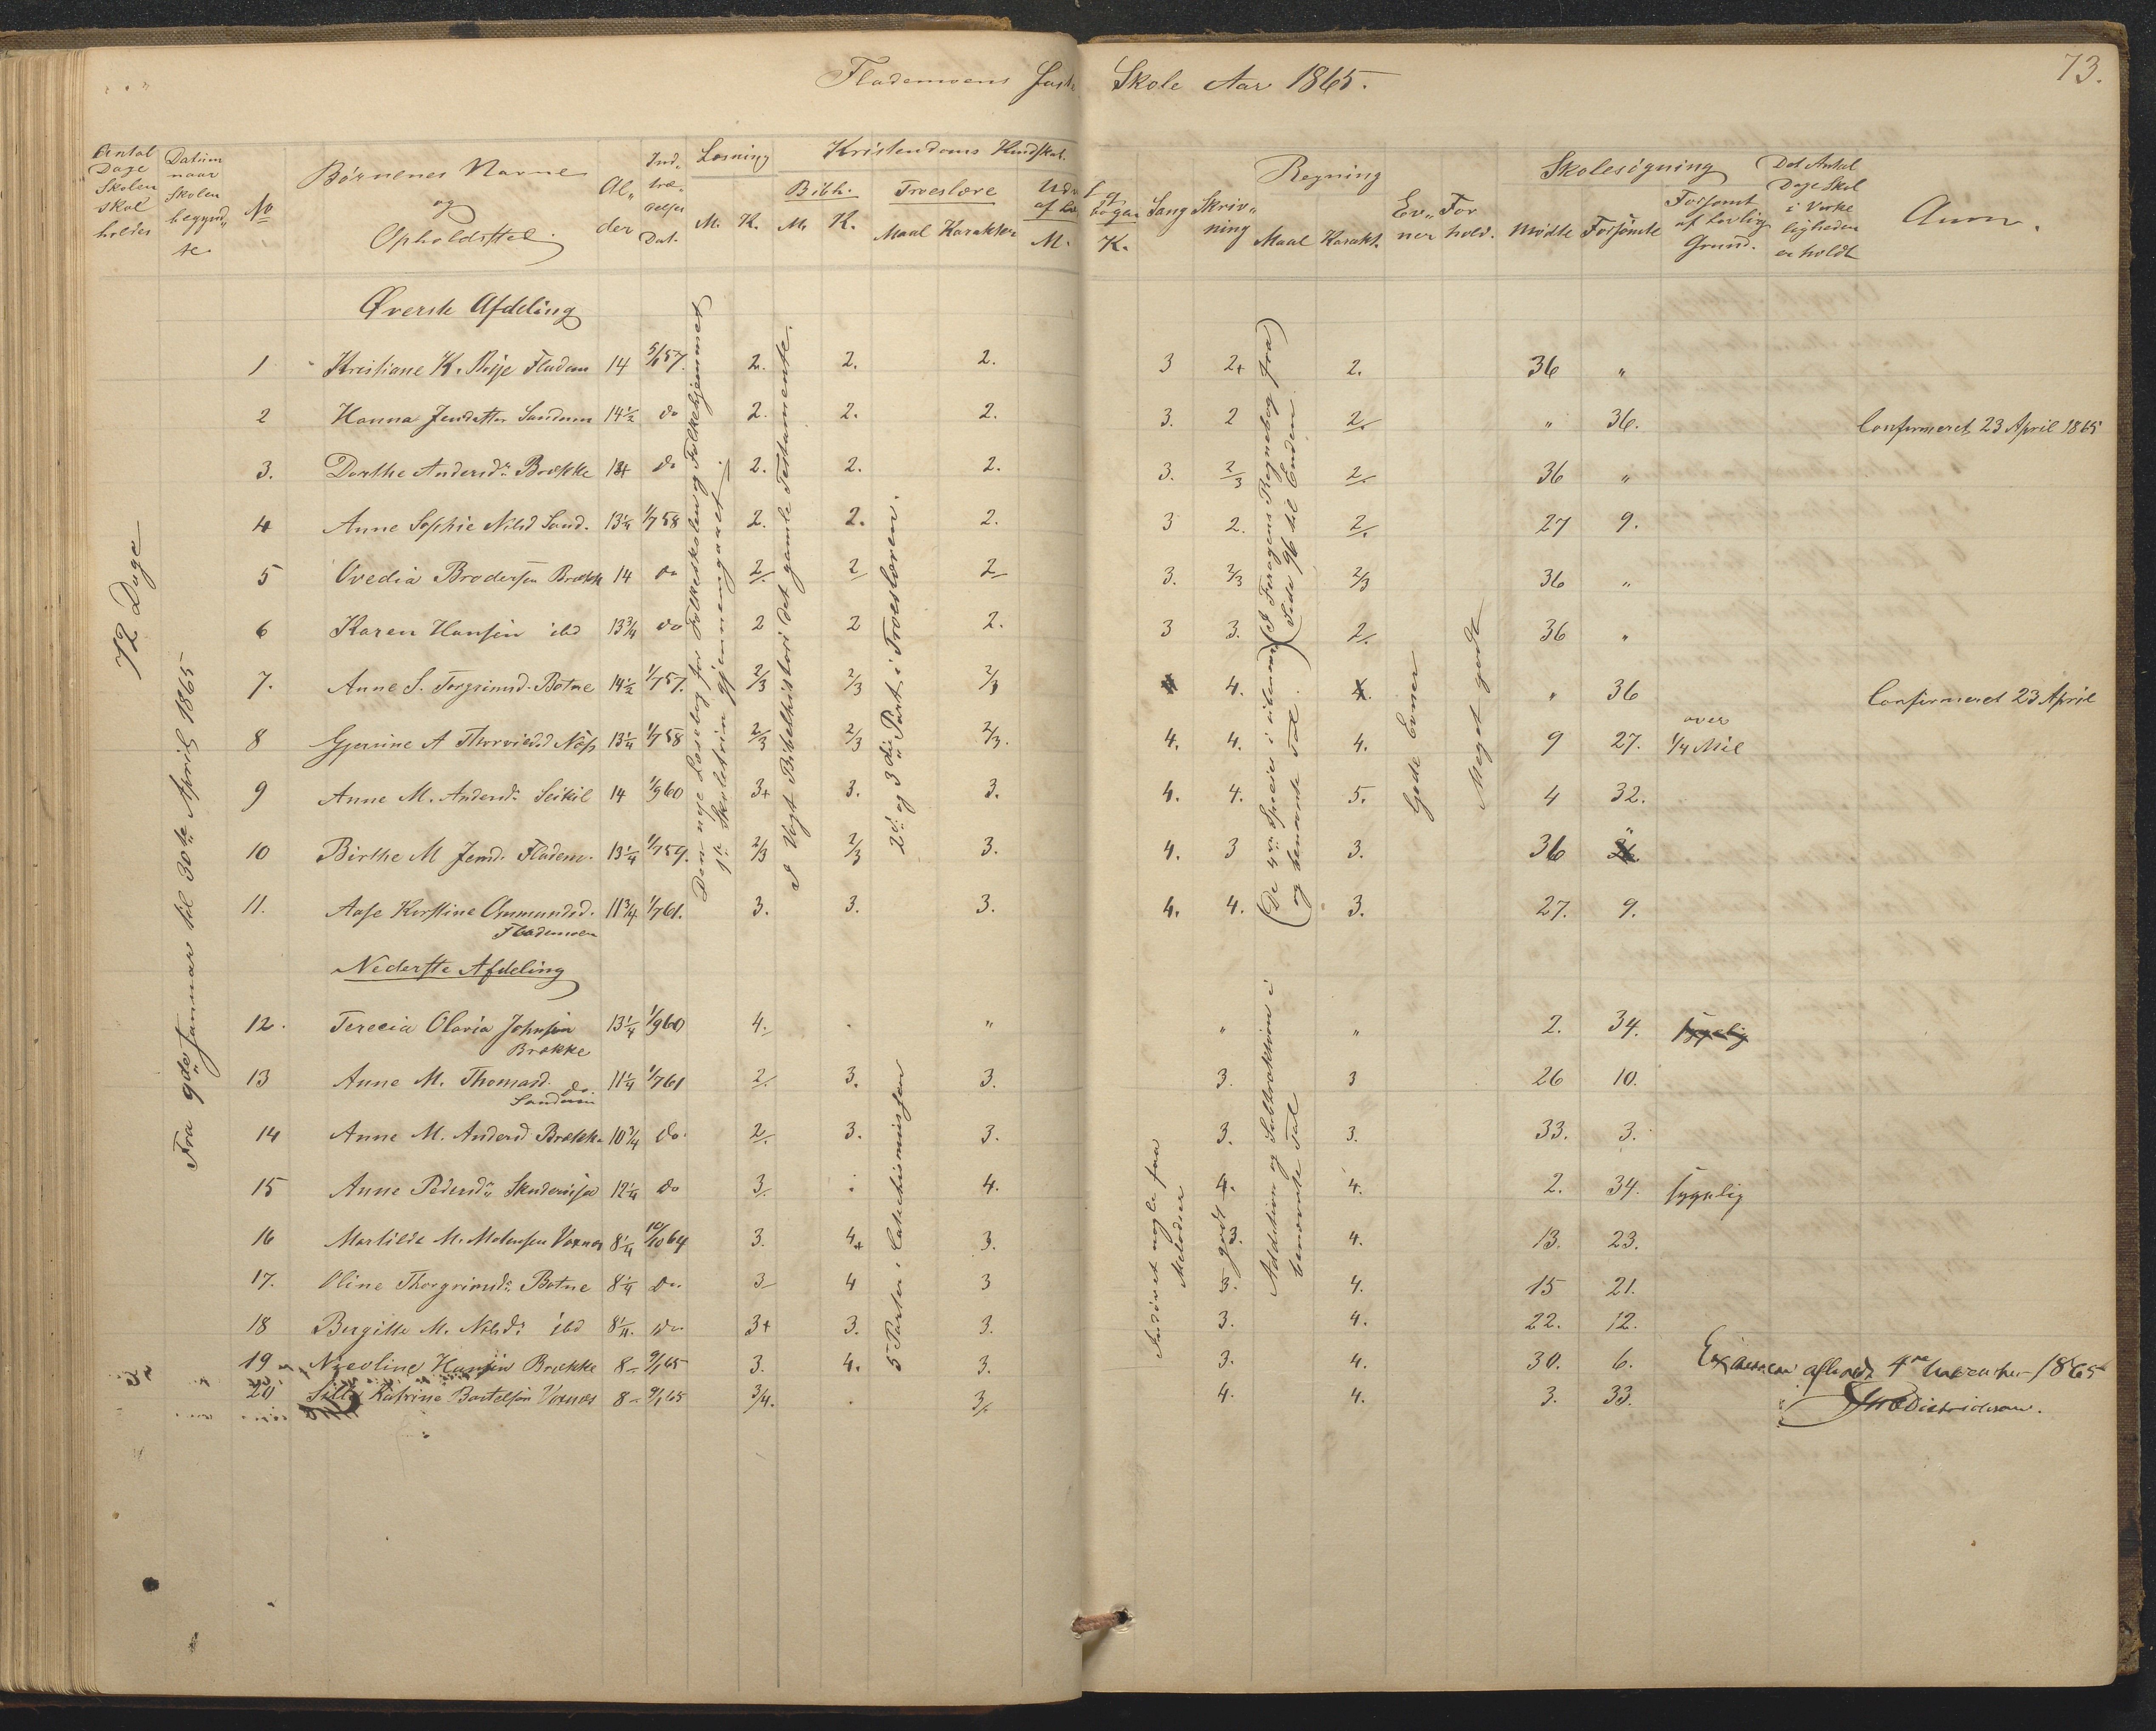 Flademoens faste Skole Aar 1865.
73.
Antal Dage Skolen skal holdes
Datum naar Skolen begynd„te
No
Børnenes Navne og Opholdssted.
Al„der
Ind„træ„delses Dat.
Læsning
M. K.
Kristendoms Kundskab.
Bibh.
M. K.
Troeslære
Maal Karakter
M.
K.
Sang
Skriv„ning
Regning
Maal Karakt.
Ev„ner
For hold.
Skolesøgning
Mødte Forsømte
Forsømt af Lovlig Grund.
Det Antal Dage Skol i Virke ligheden er holdt
Anm.
72 Dage
Fra 9de Januar til 30te April 1865
Øverste Afdeling
Den nye Læsebog for Folkeskolen og Folkehjemmet
1te Skoletrin gjennemgaaet
I Vogt Bibelhistori det gamle Testamente.
2d. og 3die Part i Troeslæren.
(De 4re Speties i ubenævnte og benævnte Tal.) (I Feragens Regnebog fra Side 96 til Enden)
Gode Evner
Meget godt
1 Kristiane K. Fladem 14 5/1 57. 2. 2. 2. 3 2+ 2. 36 „
2 Hanna Jensdatter Sandum 14½ do 2. 2. 2. 3. 2 2. „ 36. Confirmeret 23 April 1865
3. Dorthe Andersdr Brække 14 do 2. 2. 2. 3. 2/3 2. 36 „
4 Anne Sophie Nilsd Sand. 13¼ 1/7 58 2. 2. 2. 3 2. 2. 27 9.
5 Ovedia Brodersen Brække 14 do 2. 2 2 3. 2/3 2/3 36 „
6 Karen Hansen ibd 13¾ do 2 2 2. 3 3. 2. 36 „
7. Anne S. Torgrimsd. Botne 14½ 1/7 57. 2/3 2/3 2/3 4 4. 4. „ 36 Confirmeret 23 April
8 Gjerine A Thorvildsd Næs 13¼ 1/7 58 2/3 2/3 2/3. 4. 4. 4. 9 27. over ¼ Mil
9 Anne M. Andersdr Seikil 14 1/9 60 3+ 3. 3. 4. 4. 5. 4 32.
10 Birthe M Jensd. Fladem. 13¼ 1/7 59. 2/3 2/3 3. 4. 3 3. 36 „
11. Aase Kirstine Ommundsd. Flademoen 11¾ 1/7 61. 3. 3. 3. 4. 4. 3. 27. 9.
Nederste Afdeling
5 Parter i Catechismusen
Indøvet nogle faa Melodier
godt
Addition og Subtraktion i benævnte Tal
12. Terecia Olavia Johnsen Brække 13¼ 1/9 60 4. . „ „ „ 2. 34. sygelig
13 Anne M. Thomasd. Sandum 11¼ 1/7 61 2. 3. 3. 3. 3 26 10.
14 Anne M. Andersd Brække 10¾ do. 2. 3. 3. 3. 3. 33. 3.
15 Anne Pedersdr 12¼ do 3. . 4. 4. 4. 2. 34. sygelig
16 Martilde M. 8¼ 10/10 64 3. 4+ 3. 3. 4. 13. 23.
17. Oline Thorgrimsdr Botne 8¼ do. 3 4 3 3. 4. 15 21.
18 Bergitte M. Nilsdr ibd 8¼. do 3+ 3. 3. 3. 4. 22. 12.
19 Nicoline Hansen Brække 8 9/1 65 3. 4. 3. 3. 4. 30. 6.
20 Silla Katrine Bertelsen 8 9/1 65 3/4. . 3. 4. 4. 3. 33.
Examen afholdt 4de November 1865